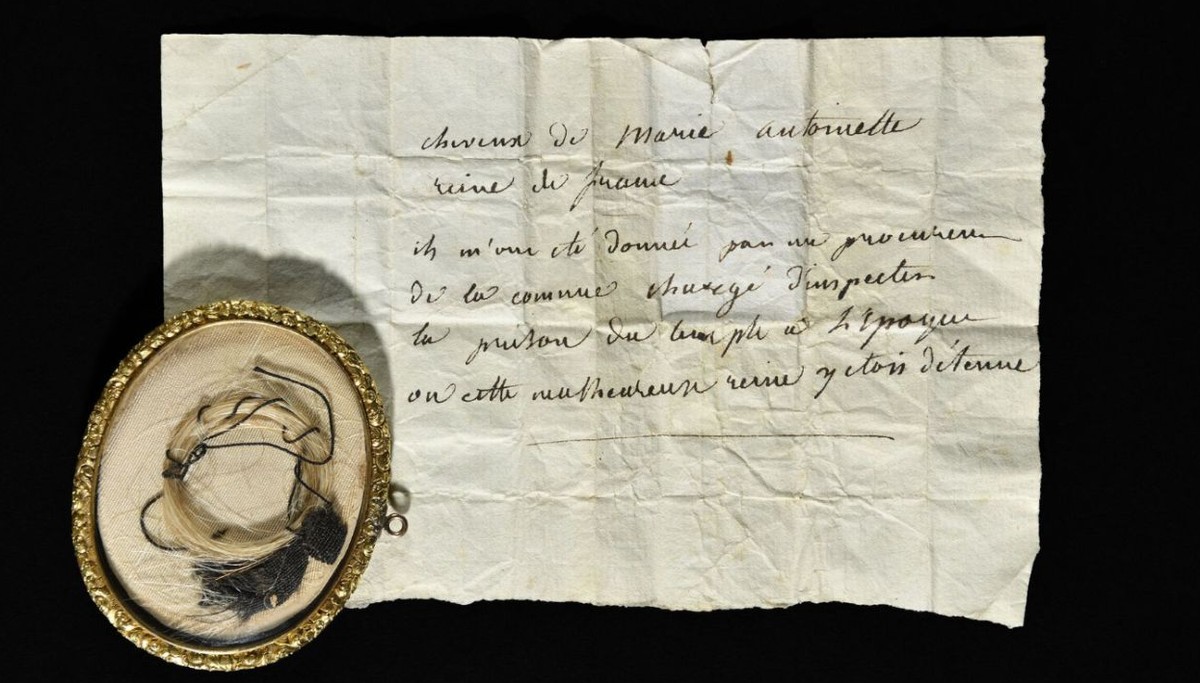 cheveux de Marie antoinette
reine de france
ils m'ont été donnée par un procureur
de la commue chargé d'inspecter
la prison du temple a L'Epoque
ou cette malheureuse reine y etois détenue